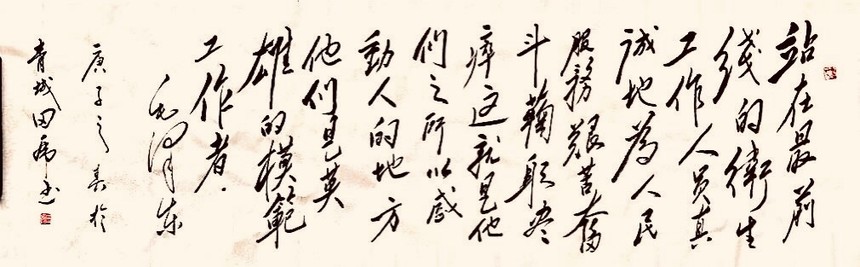 站在最前
线的衛生
工作人员真
诚地為人民
服務艱苦奮
斗鞠躬尽
瘁这就是他
们之所以感
動人的地方
他们是英
雄的模範
工作者.
毛泽东
庚子之春於
青城田希书